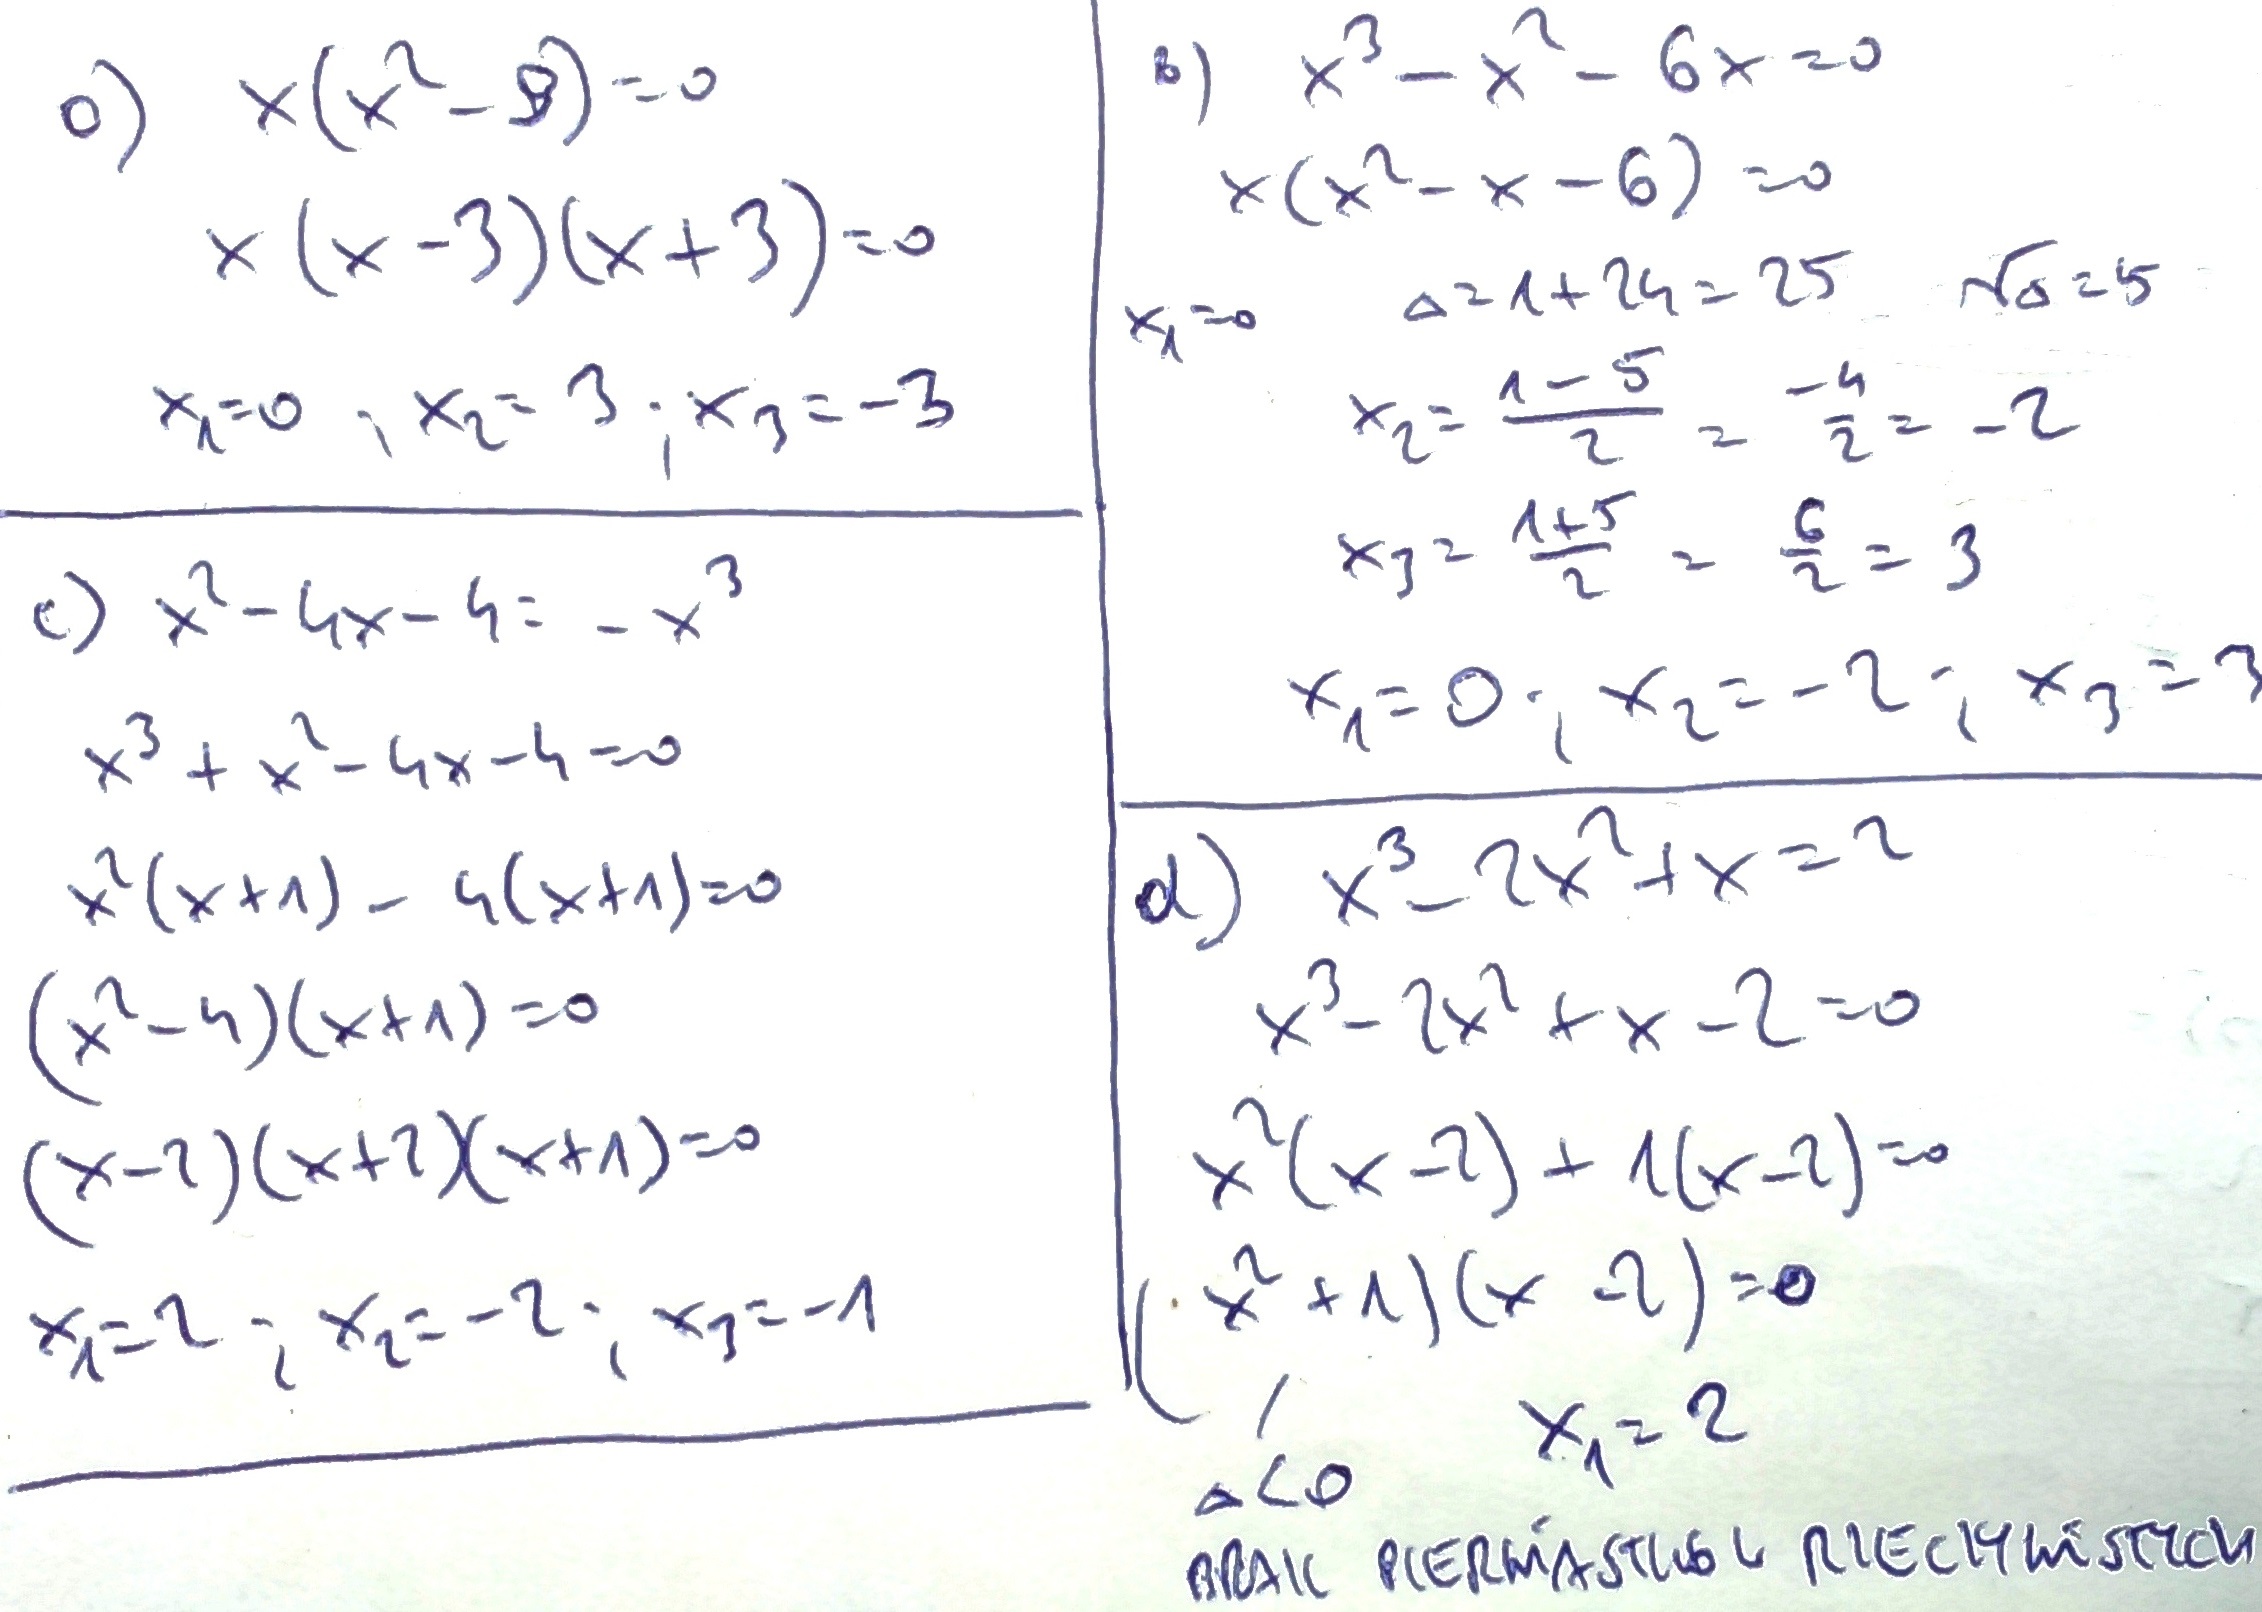 a) x(x²-9)=0
x(x-3)(x+3)=0
x₁=0 ; x₂=3 ; x₃=-3
b) x³-x²-6x=0
x(x²-x-6)=0
x₁=0 Δ=1+24=25 √Δ=5
x₂=(1-5)/2=-4/2=-2
x₃=(1+5)/2=6/2=3
x₁=0 ; x₂=-2 ; x₃=3
c) x²-4x-4=-x³
x³+x²-4x-4=0
x²(x+1)-4(x+1)=0
(x²-4)(x+1)=0
(x-2)(x+2)(x+1)=0
x₁=2 ; x₂=-2 ; x₃=-1
d) x³-2x²+x=2
x³-2x²+x-2=0
x²(x-2)+1(x-2)=0
(x²+1)(x-2)=0
x₁=2
Δ<0
BRAK PIERWIASTKÓW RZECZYWISTYCH